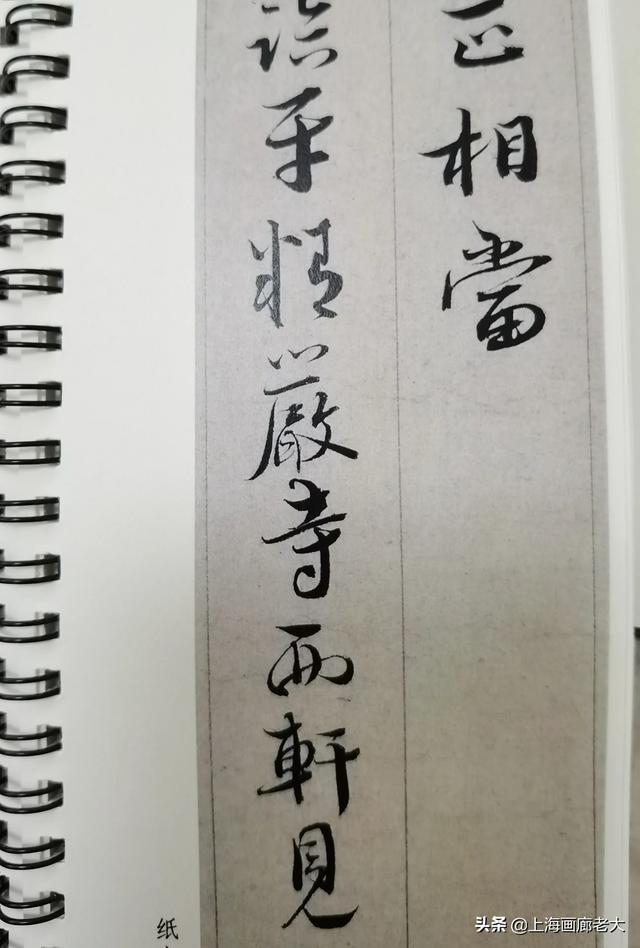 正相當
平精嚴寺西軒見
纸
头条 @上海画廊老大